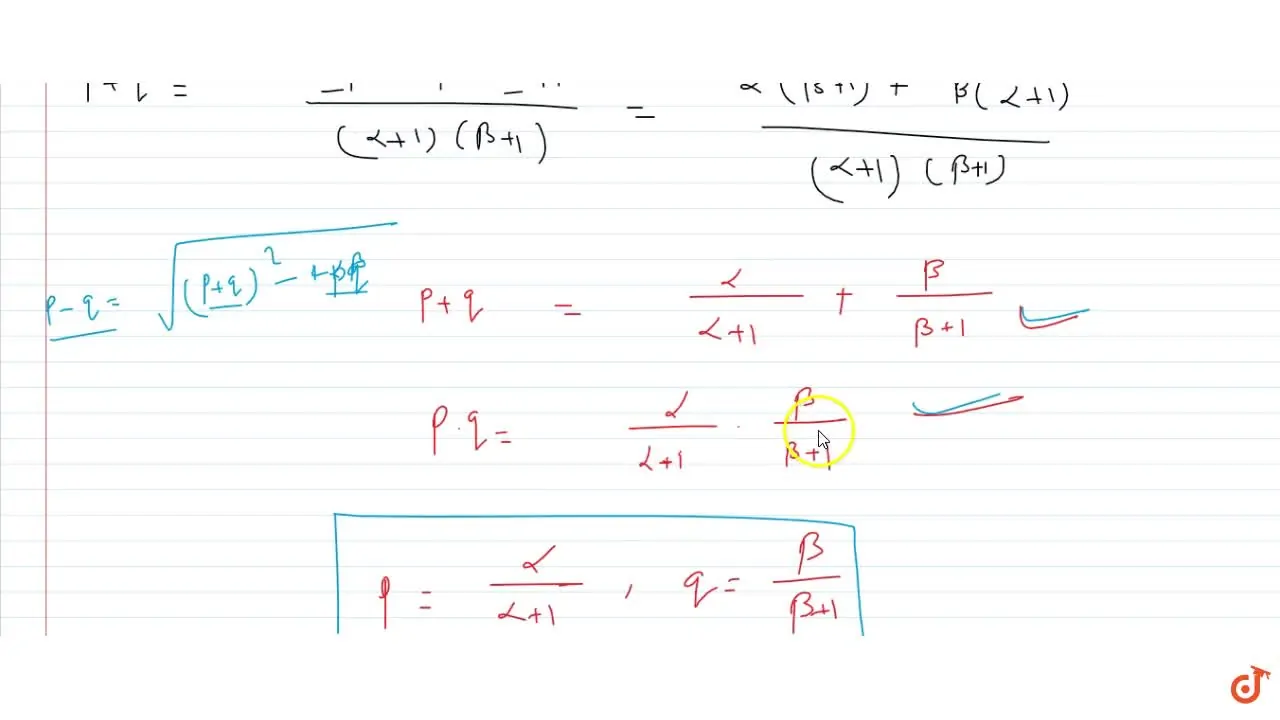 p+q = / (α+1) (β+1) = α(β+1) + β(α+1) / (α+1) (β+1)
p-q = √(p+q)² -
p+q = α/α+1 + β/β+1
p.q = α/α+1 . β/β+1
p = α/α+1 , q = β/β+1